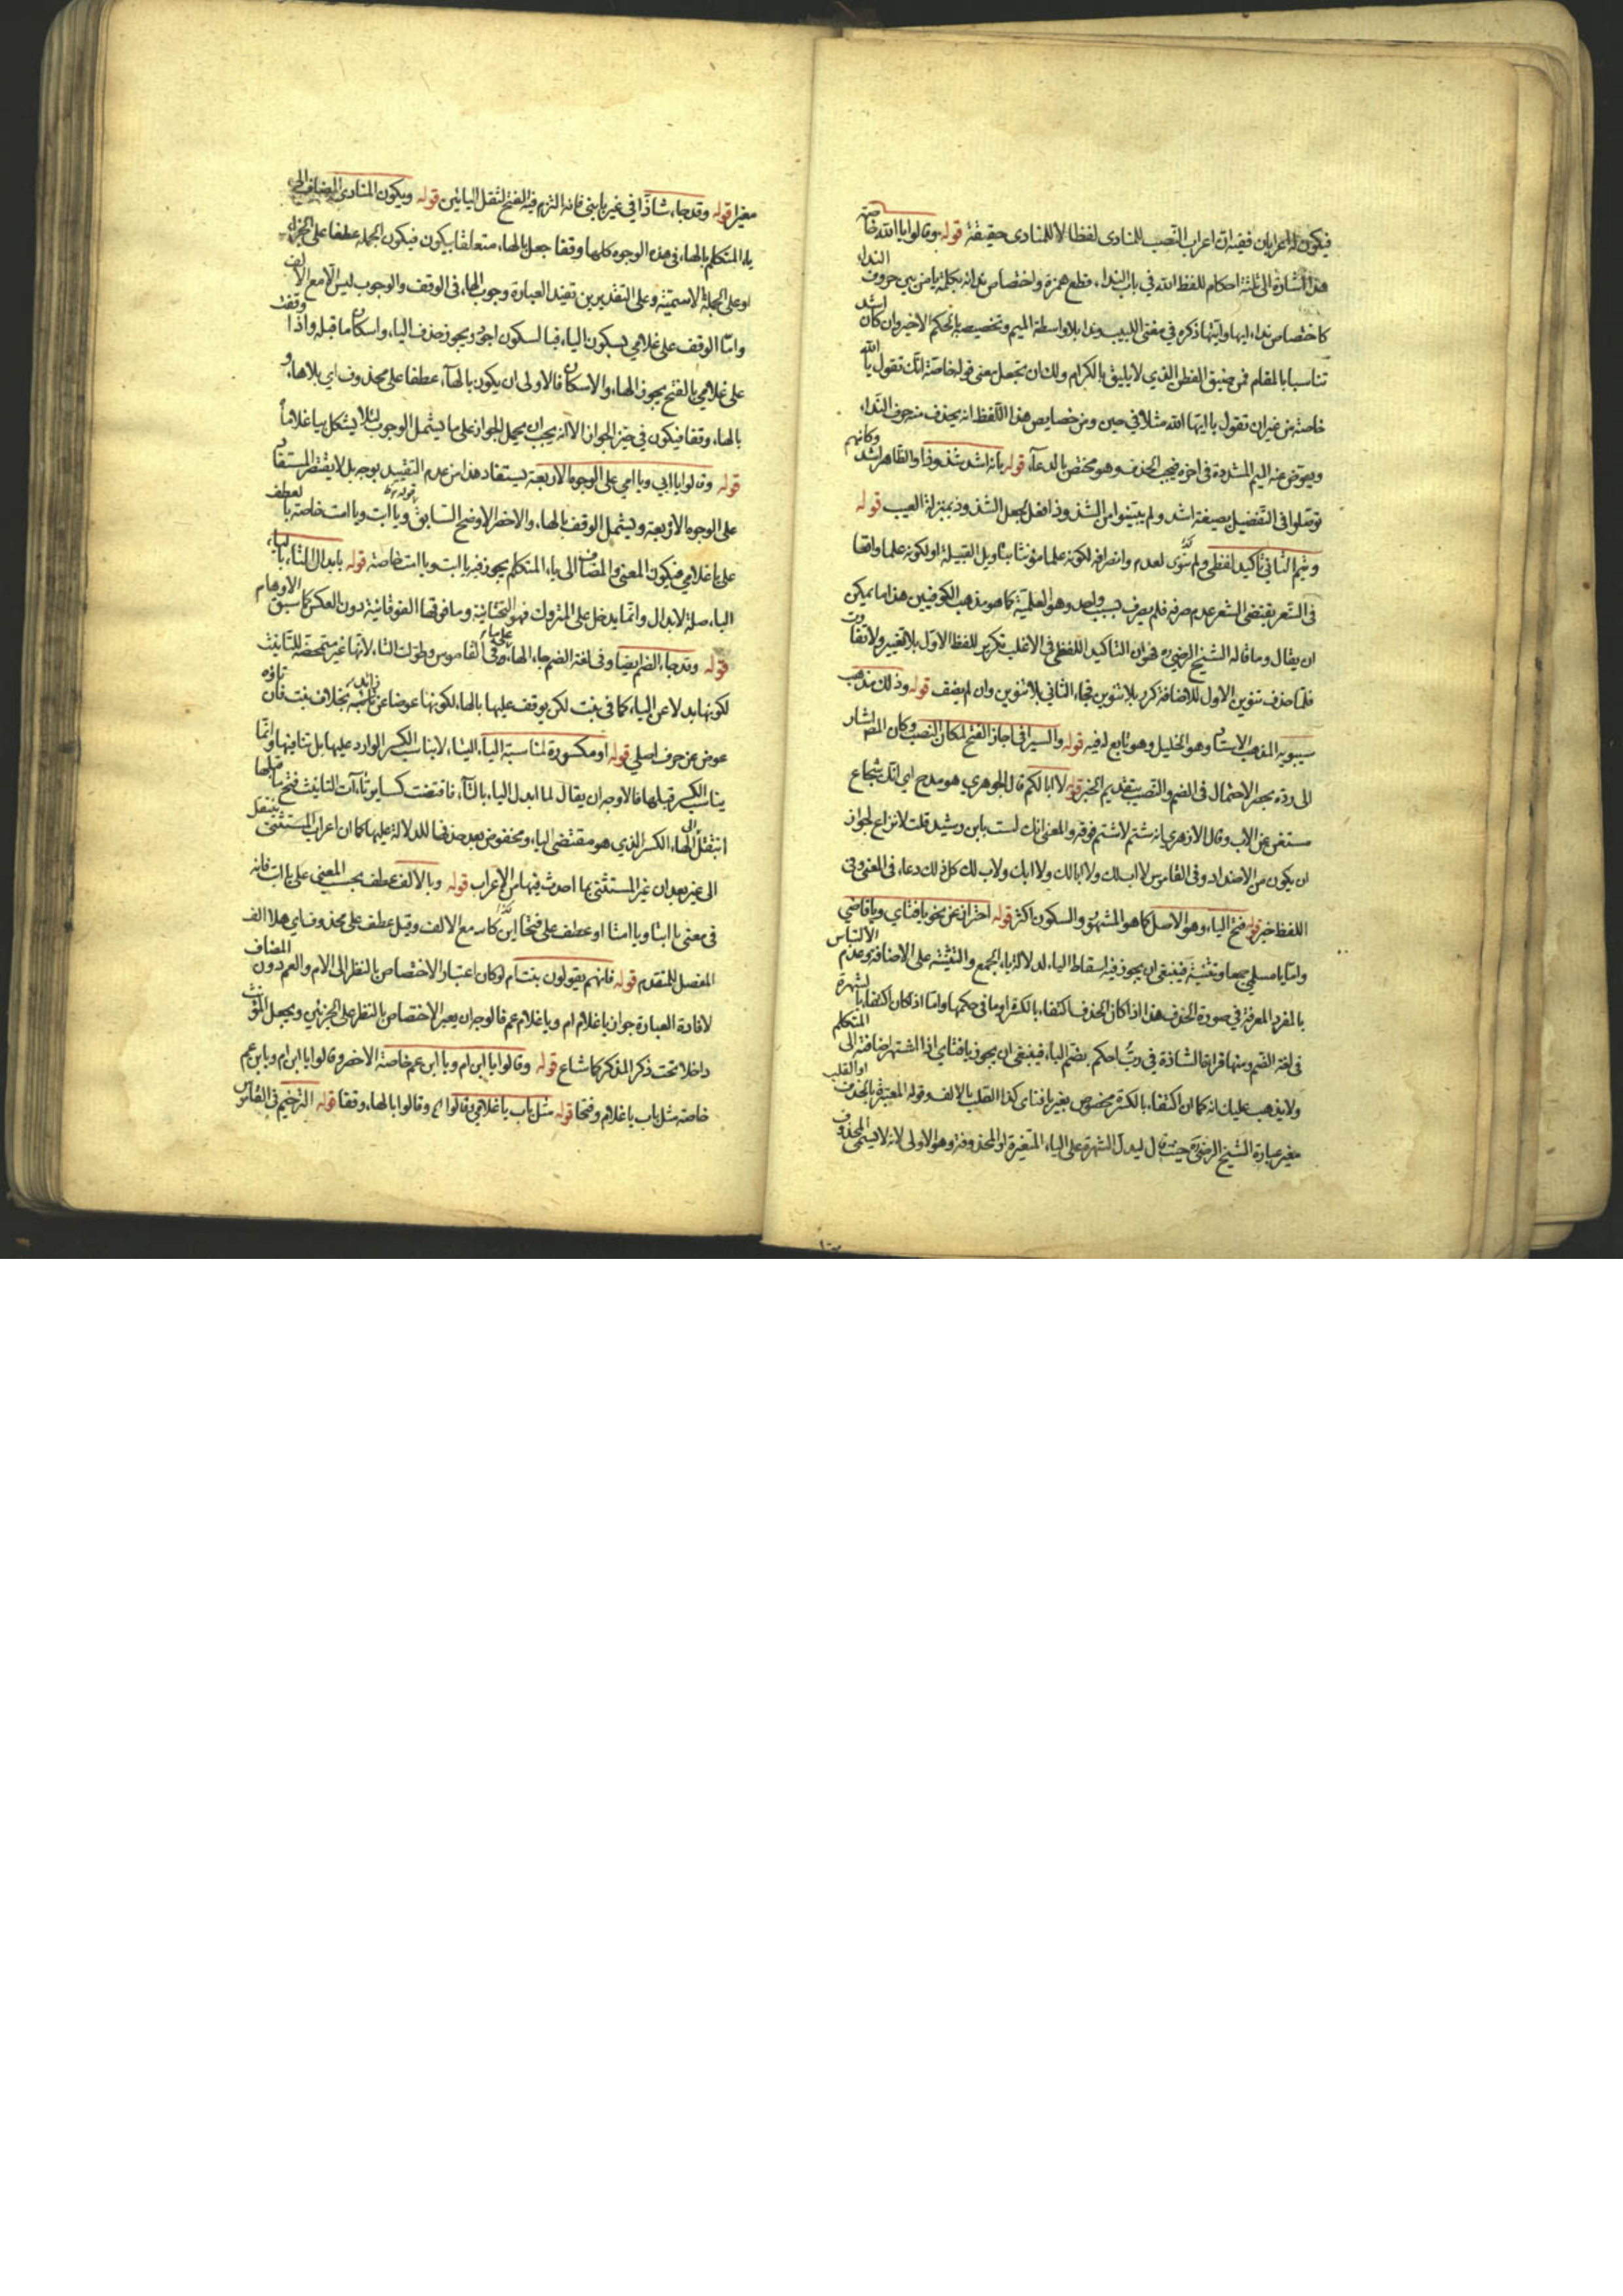 فيكون له اعرابان ففيه ان اعراب النصب للمنادى لفظا لا للمنادى حقيقة قوله وقالوا يا الله خاصة
هذا اشارة الى ثلثة احكام للفظ الله في باب النداء قطع همزة واختصاص ندائه بكلمة يا من بين حروف النداء
كاختصاص نداء ايها وايتها ذكره في مغنى اللبيب وندا بلا واسطة الميم وتخصيصه بالحكم الاخير وان كان اشد
تناسبا بالمقام فمن ضيق الفطن الذي لا يليق بالكرام ولك ان تجعل معنى قوله خاصة انك تقول يا الله
خاصة من غير ان تقول يا ايها الله مثلا في حين ومن خصايص هذا اللفظ انه يحذف منه حرف النداء
ويعوض عنه الميم المشددة في اخره فيجب الحذف وهو مختص بالدعاء قوله بانه اشد شذوذا والظاهر اشد وكانهم
توصلوا في التفضيل بصيغة اشد ولم يبنوا من الشذوذ افعل لجعل الشذوذ بمنزلة العيب قوله
وتيم الثاني تاكيد لفظي ولم ينون لعدم وانصرافه لكونه علما مؤنثا بتاويل القبيلة او لكونه علما واقعا
في الشعر يقتضى الشعر عدم صرفه فلم يصرف بسبب واحد وهو العلمية كما هو مذهب الكوفيين هذا ما يمكن
ان يقال وما قاله الشيخ الرضي ره فهو ان التاكيد اللفظي في الاغلب تكرير للفظ الاول بلا تغيير ولا تفاوت
فلما حذف تنوين الاول للاضافة كرر بلا تنوين فجاء الثاني بلا تنوين وان لم يضف قوله وذلك مذهب
سيبويه المذهب الاستاد وهو الخليل وهو تابع له فيه قوله والسيرافى اجاز الفتح لمكان النصب وكان المص اشار
الى رده بحصر الاحتمال في الضم والنصب بتقديم الخبر قوله لا ابا لكم قال الجوهري هو مدح اي انك شجاع
مستغن عن الاب وقال الازهري انه شتم لا شتم فوقه والمعنى انك لست بابن رشيد قلت لا نزاع لجواز
ان يكون من الاضداد وفى القاموس لا اب لك ولا ابا لك ولا ابك ولا ب لك كل ذلك دعاء في المعنى وفي
اللفظ خبر قوله فتح الياء وهو الاصل كما هو المشهور والسكون اكثر قوله احتراز عن نحو يا فتاي ويا قاضي
واما يا مسلمي جمعا وتثنية فينبغي ان يجوز فيه اسقاط الياء لدلالة ياء الجمع والتثنية على الاضافة وعدم الالتباس
بالمفرد المعرفة في صورة الحذف هذا اذا كان الحذف اكتفاء بالكسرة او ما في حكمها واما اذا كان اكتفاء بالشهرة
فى لغة الضم ومنها قراءة الشاذة فى رب احكم بضم الباء فينبغي ان يجوز يا فتاي اذا اشتهر اضافته الى المتكلم
ولا يذهب عليك انه كما ان اكتفاء بالكسرة مخصوص بغير يا فتاى كذا القلب بالالف وقوله المغيرة بالحذف او القلب
مغير عبارة الشيخ الرضى ره حيث قال ليدل الشهرة على الياء المتغيرة او المحذوفة وهو الاولى لانه لا يسمى المحذوف
مغيرا قوله وقد جاء شاذا في غير يا بني فانه التزم فيه الفتح لثقل اليائين قوله ويكون المنادى المضاف الى
ياء المتكلم بالهاء في هذه الوجوه كلها وقفا جعل بالهاء متعلقا بيكون فيكون الجملة عطفا على الخبرية
او على الجملة الاسمية وعلى التقديرين تفيد العبارة وجوب الهاء في الوقف والوجوب ليس الا مع الالف
واما الوقف على غلامي بسكون الياء فبالسكون اجود ويجوز حذف الياء واسكان ما قبله واذا وقفت
على غلامي بالفتح يجوز الهاء والاسكان فالاولى ان يكون بالهاء عطفا على محذوف اي بلا هاء و
بالهاء وقفا فيكون في حيز الجواز الا انه يجب ان يحمل الجواز على ما يشمل الوجوب لئلا يشكل بيا غلاما
قوله وقالوا يا ابي ويا امي على الوجوه الاربعة يستفاد هذا من عدم التقييد بوجه بل لا يقتصر المستفاد
على الوجوه الاربعة ويشمل الوقف بالهاء والاخصر الاوضح السابق قوله ويا ابت ويا امت خاصة بالعطف
على يا غلامي فيكون المعنى والمضاف الى ياء المتكلم يجوز فيه يا ابت ويا امت خاصة قوله بابدال التاء بالياء
الباء صلة لابدال وانما يدخل على المتروك فهو التحتانية وما فوقها الفوقانية دون العكس كما سبق الاوهام
قوله وقد جاء الضم ايضا وفى لغة الضم جاء الهاء وفى القاموس وطولت التاء لانها غير متمحضة للتانيث
لكونها بدلا عن الياء كما في بنت لكن يوقف عليها بالهاء لكونها عوضا عن زائد بخلاف بنت فان تاؤه
عوض عن حرف اصلي قوله او مكسورة لمناسبة الياء التاء لا يناسب الكسر الوارد عليها بل تنافيها وانما
يناسب الكسر قبلها فالاوجه ان يقال لما ابدل الياء بالتاء فاقتضت كسائر تاآت التانيث فتح ما قبلها
انتقل الى الهاء الكسر الذي هو مقتضى الياء ومحفوض بعد حذفها للدلالة عليها كما ان اعراب المستثنى ينتقل
الى غير بعد ان غير المستثنى بما احدث فيها من الاعراب قوله وبالالف عطف بحسب المعنى على يا ابت فانه
فى معنى يا ابتا ويا امتا او عطف على فتحا اي كائنا مع الالف وقيل عطف على محذوف اي بلا الف
المفصل المتقدم قوله فانهم يقولون بنت ام لو كان اعتبار الاختصاص بالنظر الى الام والعم دون المضاف
لافادة العبارة جواز يا غلام ام ويا غلام عم فالوجه ان يعبر الاختصاص بالنظر على الجزئين ويجعل المؤنث
داخلا تحت ذكر المذكر كما شاع قوله وقالوا يا ابن ام ويا ابن عم خاصة الاخصر وقالوا يا ابن ام ويا بن عم
خاصة مثل باب يا غلام وفتحا قوله مثل باب يا غلامي وقالوا اه وقالوا بالهاء وقفا قوله الترخيم في القاموس